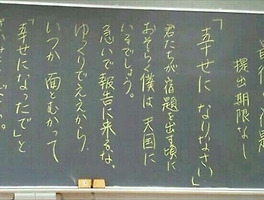 最後の宿題
提出期限なし
「幸せに なりなさい」
君たちが宿題を出す頃に
おそらく僕は 天国に
いるでしょう。
急いで報告に来るな。
ゆっくりでええから
いつか 面とむかって
「幸せになったで」と